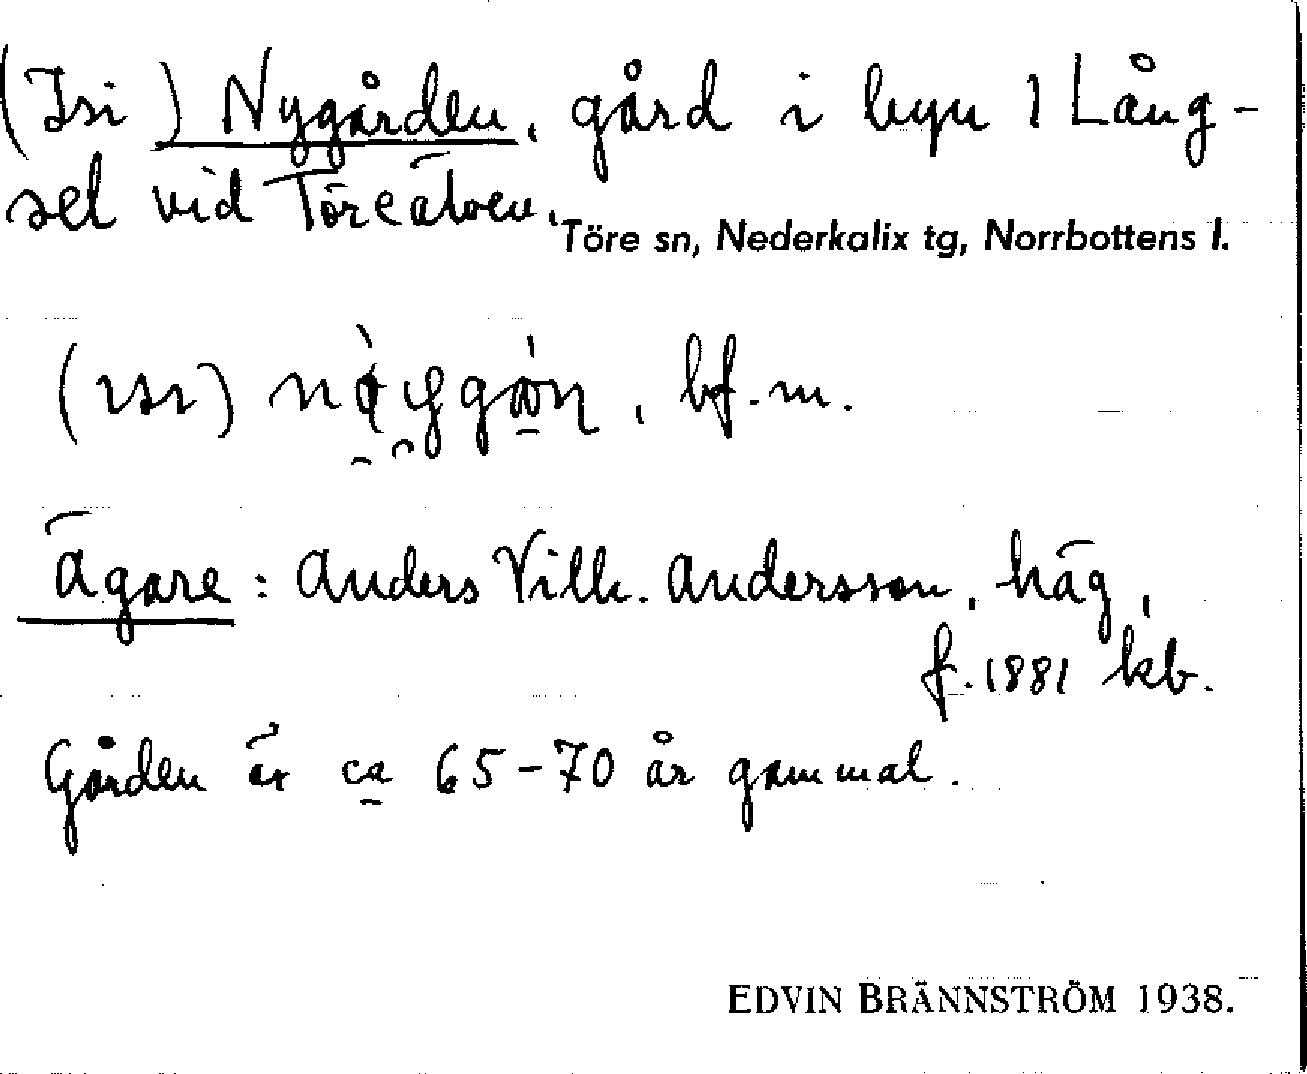 (Isi) Nygården, gård i byn 1 Lång-
sel vid Töreälven.
Töre sn, Nederkalix tg, Norrbottens l.
bf. m.
Ägare: Anders Vilh. Andersson, häg,
f. 1881 kb.
Gården är ca 65-70 år gammal.
EDVIN BRÄNNSTRÖM 1938.